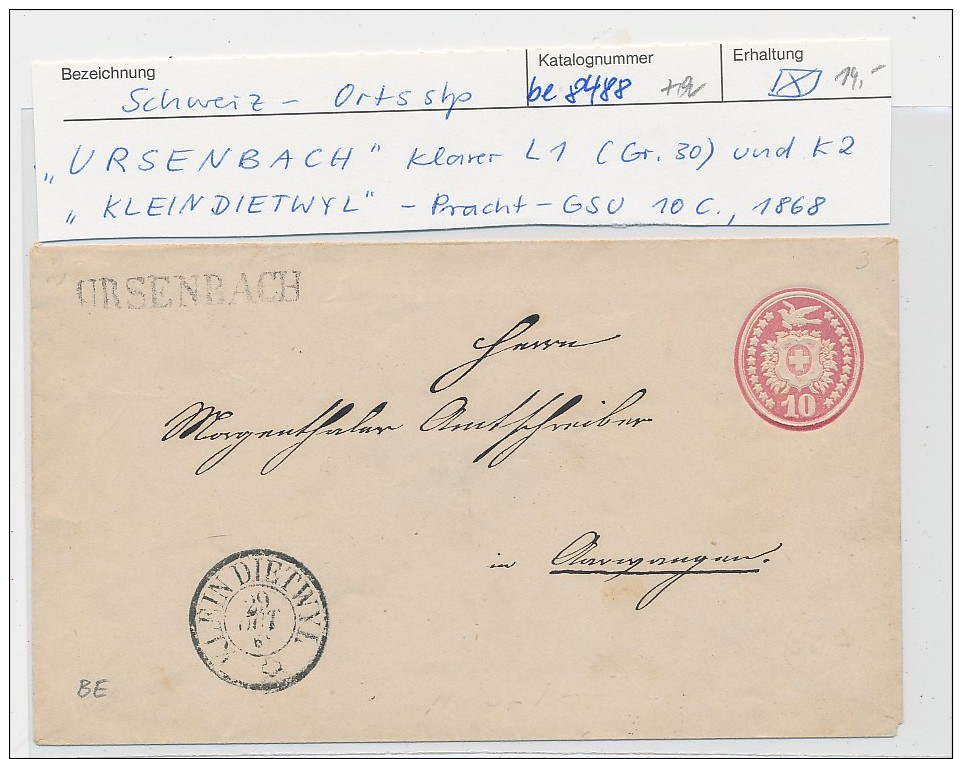 Bezeichnung Katalognummer Erhaltung
Schweiz – Ortsstp be 8488 14,-
„URSENBACH" klarer L1 (Gr. 30) und K2
„KLEINDIETWYL" – Pracht – GSU 10 C., 1868
3
URSENBACH
Herrn
10
Morgenthaler Amtschreiber
in Aarwangen.
KLEIN DIETWYL
29
BE